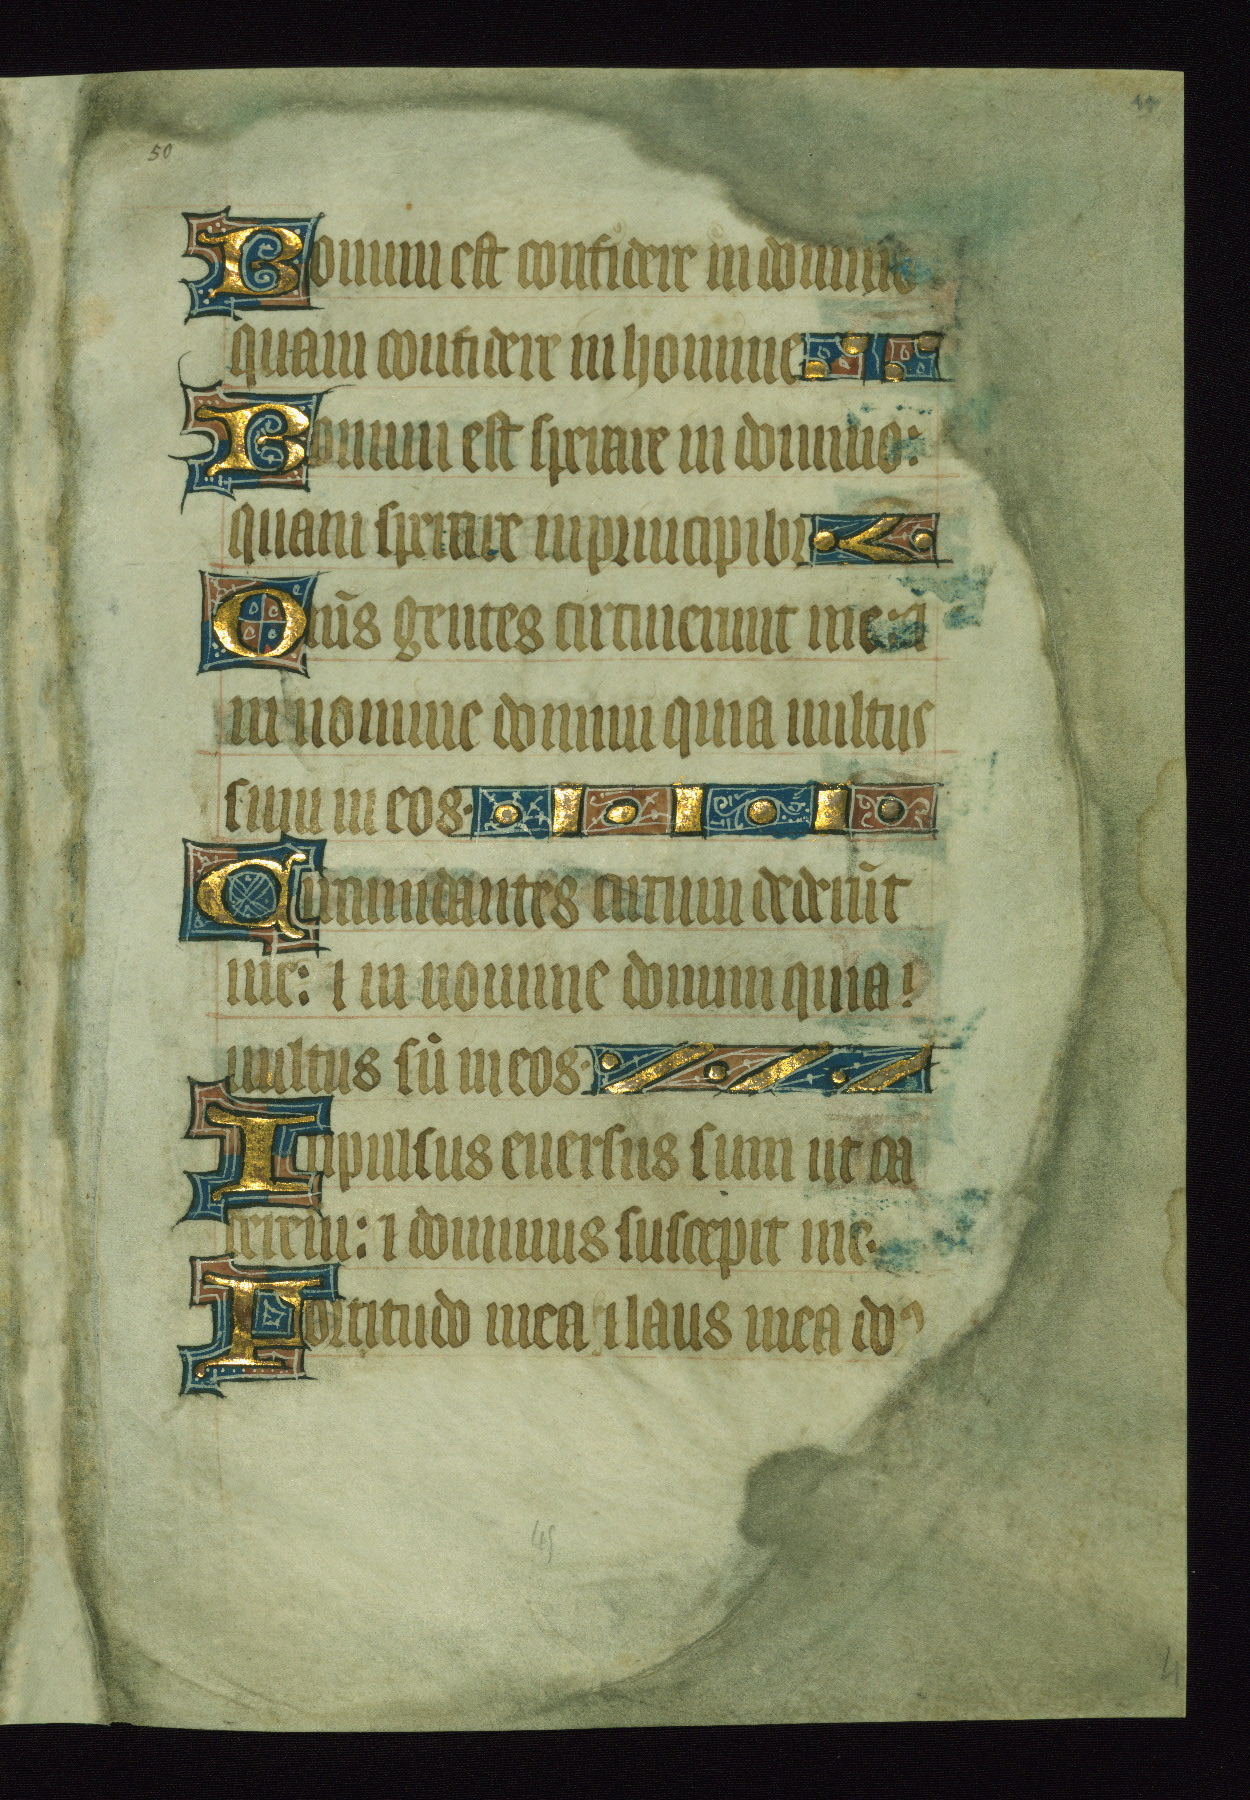 50
Bonum est confidere in domino
quam confidere in homine
Bonum est sperare in domino:
quam sperare in principibꝫ
Om̄s gentes circuierunt me: ⁊
in nomine domini quia ultus
sum in eos.
Circumdantes circum dederūt
me: ⁊ in nomine domini quia
ultus sū in eos.
Inpulsus euersus sum ut ca
derem: ⁊ dominus suscepit me.
Fortitudo mea ⁊ laus mea do
49